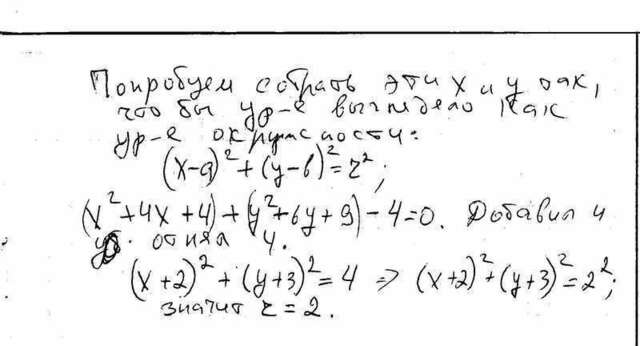 Попробуем собрать эти x и y так,
что бы ур-е выглядело как
ур-е окружности:
(x-a)²+(y-b)²=r²;
(x²+4x+4)+(y²+6y+9)-4=0. Добавил и
отнял 4.
(x+2)²+(y+3)²=4 => (x+2)²+(y+3)²=2²;
значит r=2.